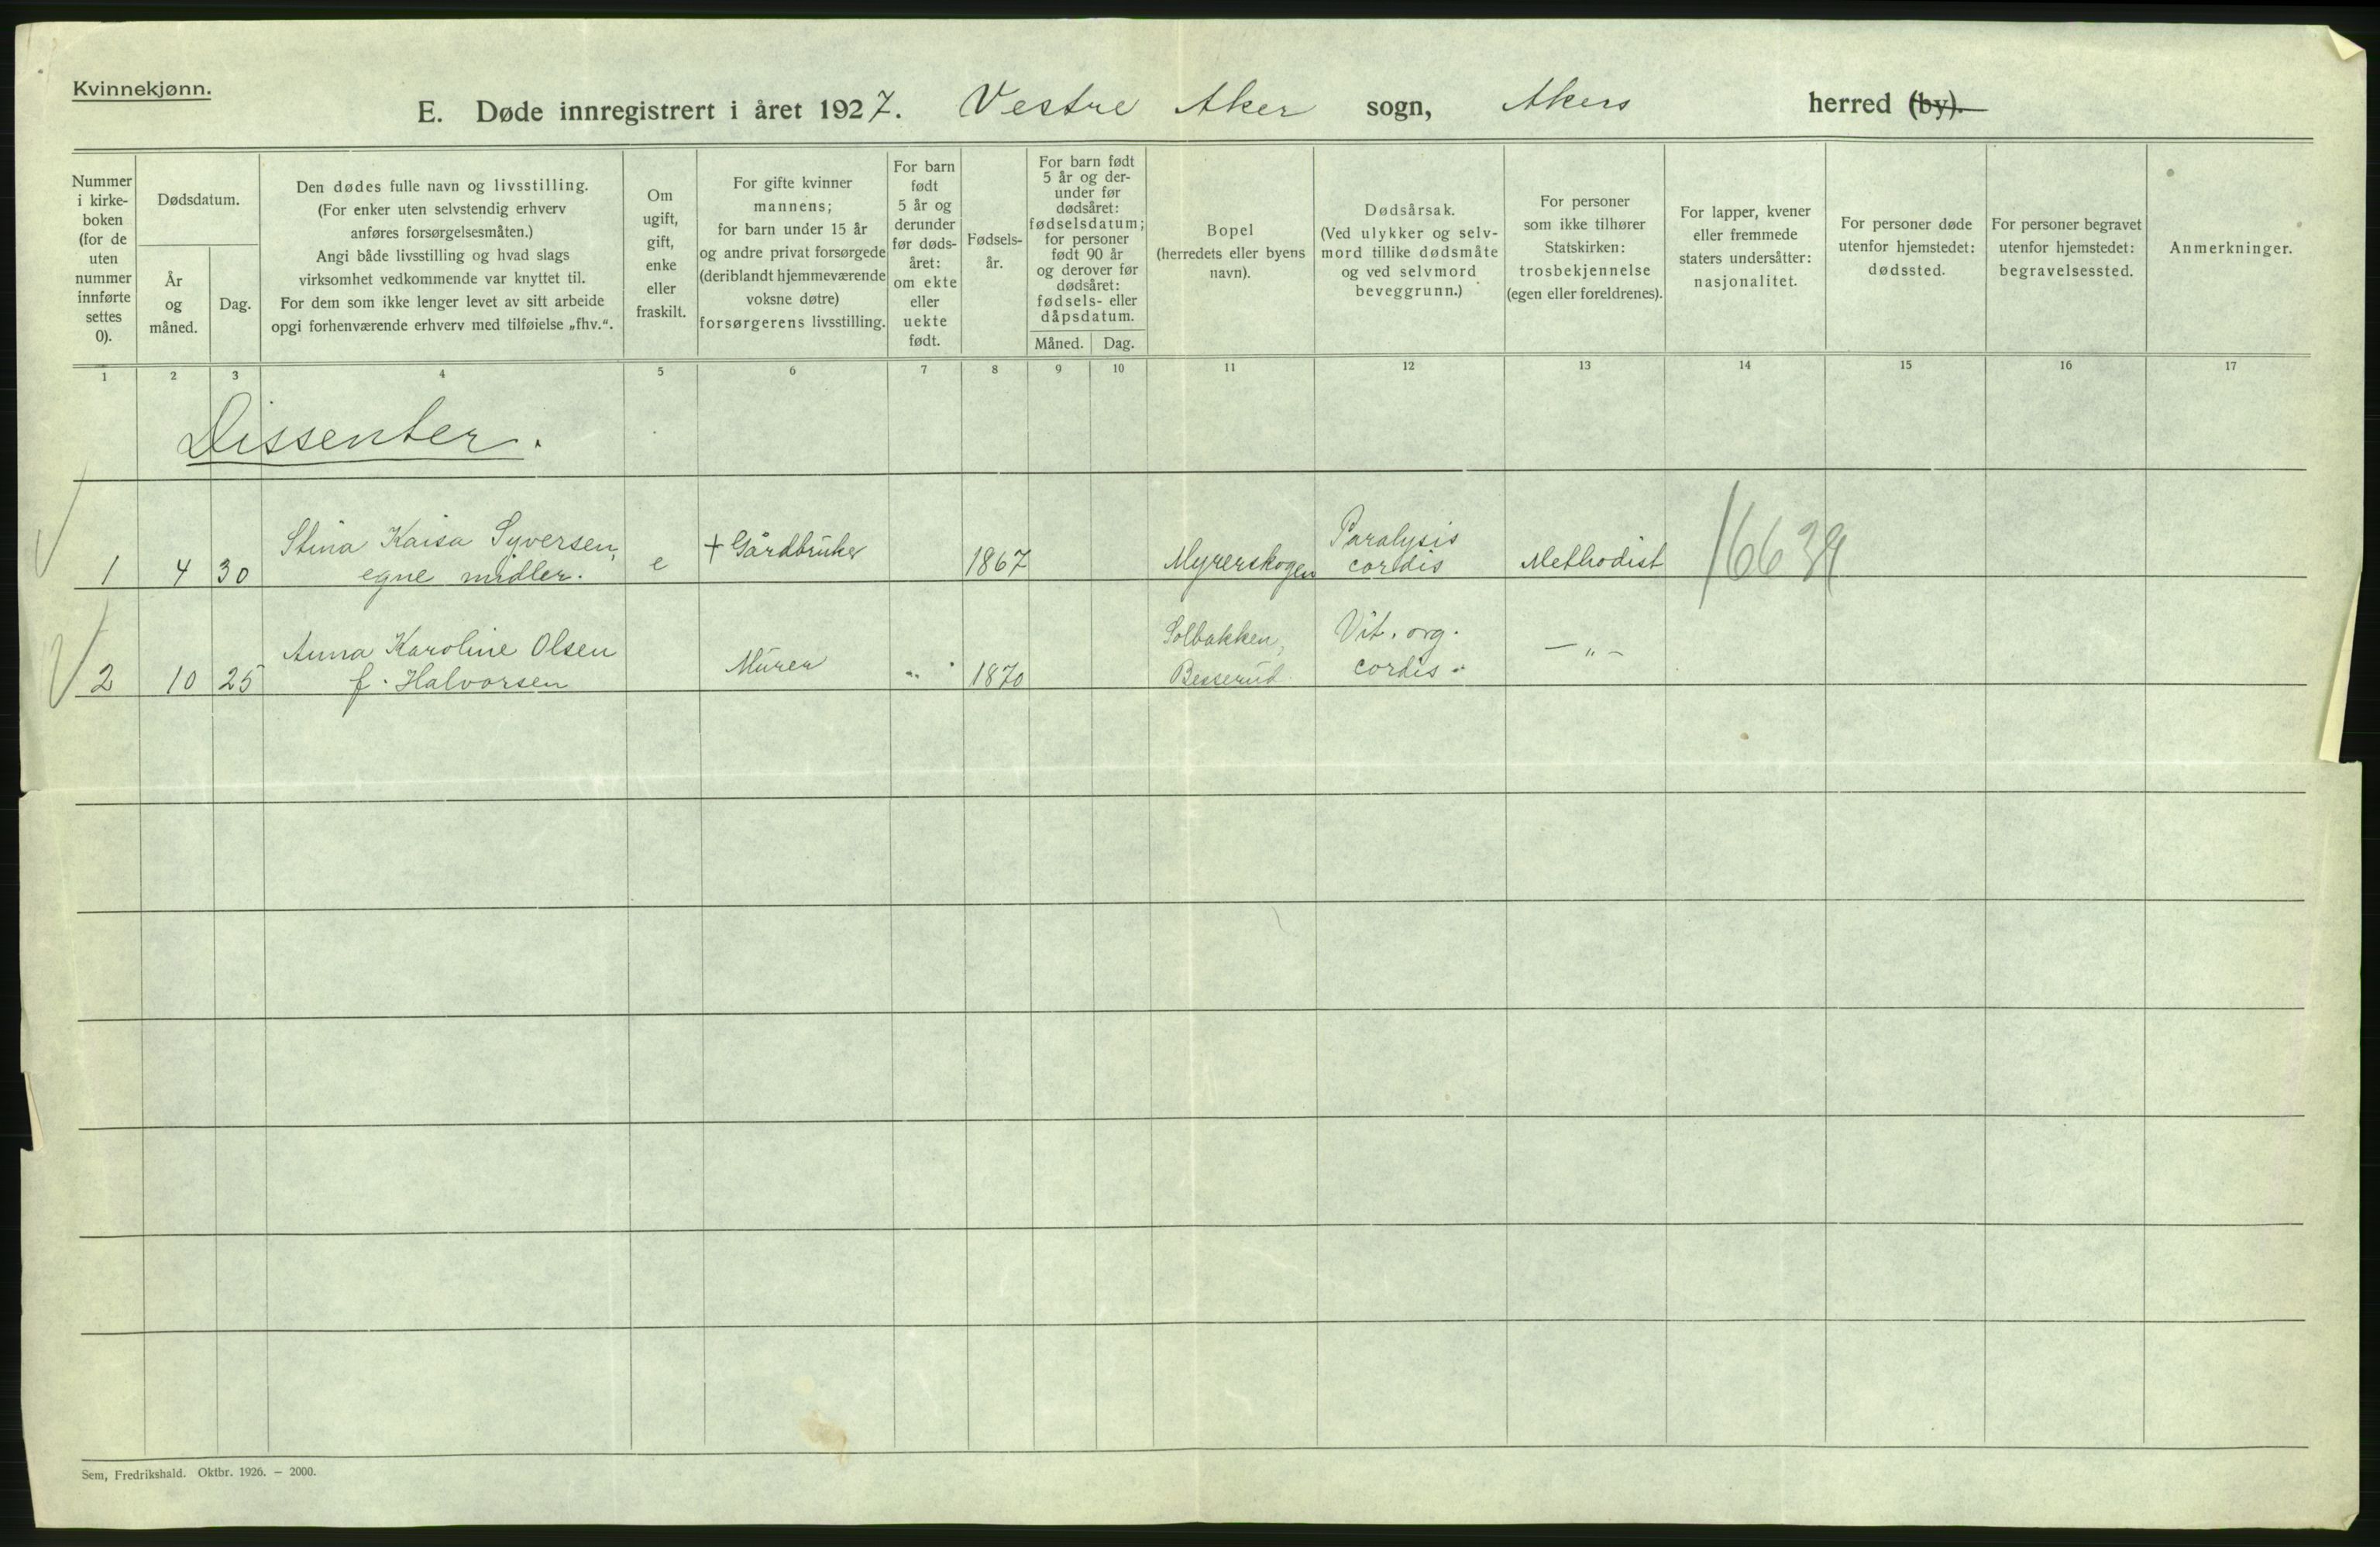 Kvinnekjønn.
E. Døde innregistrert i året 1927. Vestre Aker sogn, Akers herred (by).
Nummer
i kirke-
boken
(for de
uten
nummer
innførte
settes
0).
Dødsdatum.
År
og
måned.
Dag.
Den dødes fulle navn og livsstilling.
(For enker uten selvstendig erhverv
anføres forsørgelsesmåten.)
Angi både livsstilling og hvad slags
virksomhet vedkommende var knyttet til.
For dem som ikke lenger levet av sitt arbeide
opgi forhenværende erhverv med tilføielse „fhv.“.
Om
ugift,
gift,
enke
eller
fraskilt.
For gifte kvinner
mannens;
for barn under 15 år
og andre privat forsørgede
(deriblandt hjemmeværende
voksne døtre)
forsørgerens livsstilling.
For barn
født
5 år og
derunder
før døds-
året:
om ekte
eller
uekte
født.
Fødsels-
år.
For barn født
5 år og der-
under før
dødsåret:
fødselsdatum;
for personer
født 90 år
og derover før
dødsåret:
fødsels- eller
dåpsdatum.
Måned. Dag.
Bopel
(herredets eller byens
navn).
Dødsårsak.
(Ved ulykker og selv-
mord tillike dødsmåte
og ved selvmord
beveggrunn.)
For personer
som ikke tilhører
Statskirken:
trosbekjennelse
(egen eller foreldrenes).
For lapper, kvener
eller fremmede
staters undersåtter:
nasjonalitet.
For personer døde
utenfor hjemstedet:
dødssted.
For personer begravet
utenfor hjemstedet:
begravelsessted.
Anmerkninger.
1 2 3 4 5 6 7 8 9 10 11 12 13 14 15 16 17
Dissenter.
Stina Kaisa Syversen, + Gårdbruker Paralysis
1 4 30 egne midler. e 1867 Myrerskogen cordis Methodist
Anna Karoline Olsen Solbakken, Vit. org.
2 10 25 f. Halvorsen Murer " 1870 Besserud cordis. — „ —
Sem, Fredrikshald. Oktbr. 1926. — 2000.